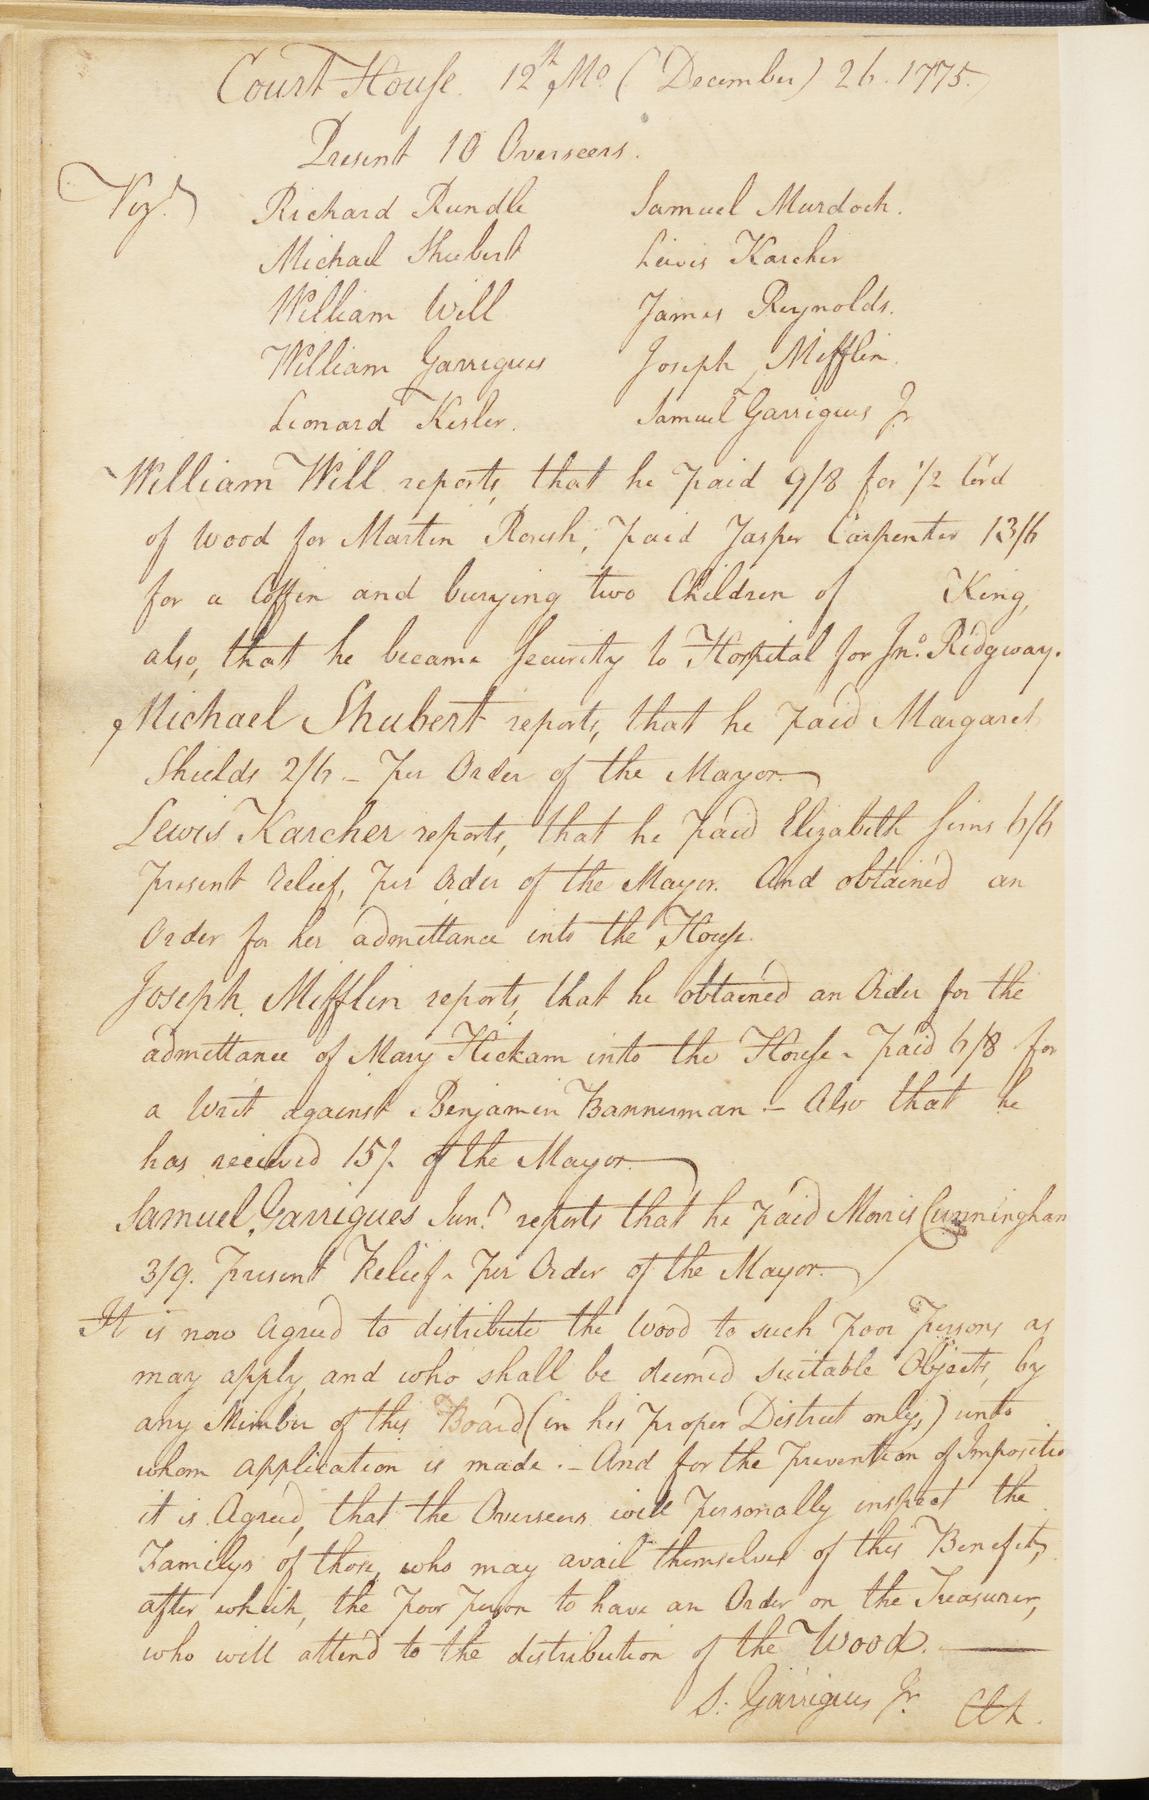 Court House. 12th Mo. (December) 26. 1775.
Present 10 Overseers.
Vizt.
Richard Rundle Samuel Murdoch.
Michael Shubert Lewis Karcher
William Will James Reynolds.
William Garrigues Joseph Mifflin.
Leonard Kesler. Samuel Garrigues Jr
William Will reports, that he paid 9/8 for 1/2 Cord
of Wood for Martin Roush; paid Jasper Carpenter 13/6
for a Coffin and burying two Children of King,
also, that he became Security to Hospital for Jno. Ridgway.
Michael Shubert reports, that he paid Margaret
Shields 2/6 - Per Order of the Mayor.
Lewis Karcher reports, that he paid Elizabeth Sims 6/6
Present relief, per Order of the Mayor. And obtained an
Order for her admittance into the House.
Joseph Mifflin reports, that he obtained an Order for the
admittance of Mary Hickam into the House - paid 6/8 for
a Writ against Benjamin Bannerman - Also that he
has received 15/. of the Mayor.
Samuel Garrigues Junr. reports that he paid Morris Cunningham
3/9. Present Relief - Per Order of the Mayor.
It is now Agreed to distribute the Wood to such Poor Persons as
may apply, and who shall be deemed suitable Objects, by
any Member of this Board (in his proper District only,) unto
whom application is made. - And for the prevention of Impositio
it is Agreed, that the Overseers will personally inspect the
Familys of those, who may avail themselves of this Benefit,
after which, the poor person to have an Order on the Treasurer,
who will attend to the distribution of the Wood.
S. Garrigues Jr. Clk.